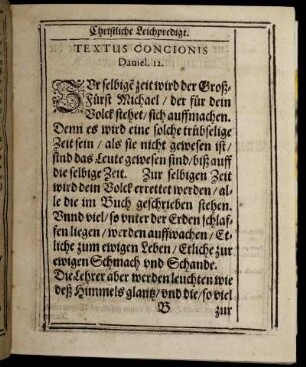 Christliche Leichpredigt.
TEXTUS CONCIONIS
Daniel. 12.
ZUr selbigē zeit wird der Groß-
Fürst Michael / der für dein
Volck stehet / sich auffmachen.
Denn es wird eine solche trübselige
Zeit sein / als sie nicht gewesen ist /
sind das Leute gewesen sind / biß auff
die selbige Zeit. Zur selbigen Zeit
wird dein Volck errettet werden / al-
le die im Buch geschrieben stehen.
Vnnd viel / so vnter der Erden schlaf-
fen liegen / werden auffwachen / Et-
liche zum ewigen Leben / Etliche zur
ewigen Schmach vnd Schande.
Die Lehrer aber werden leuchten wie
deß Himmels glantz / vnd die / so viel
B zur